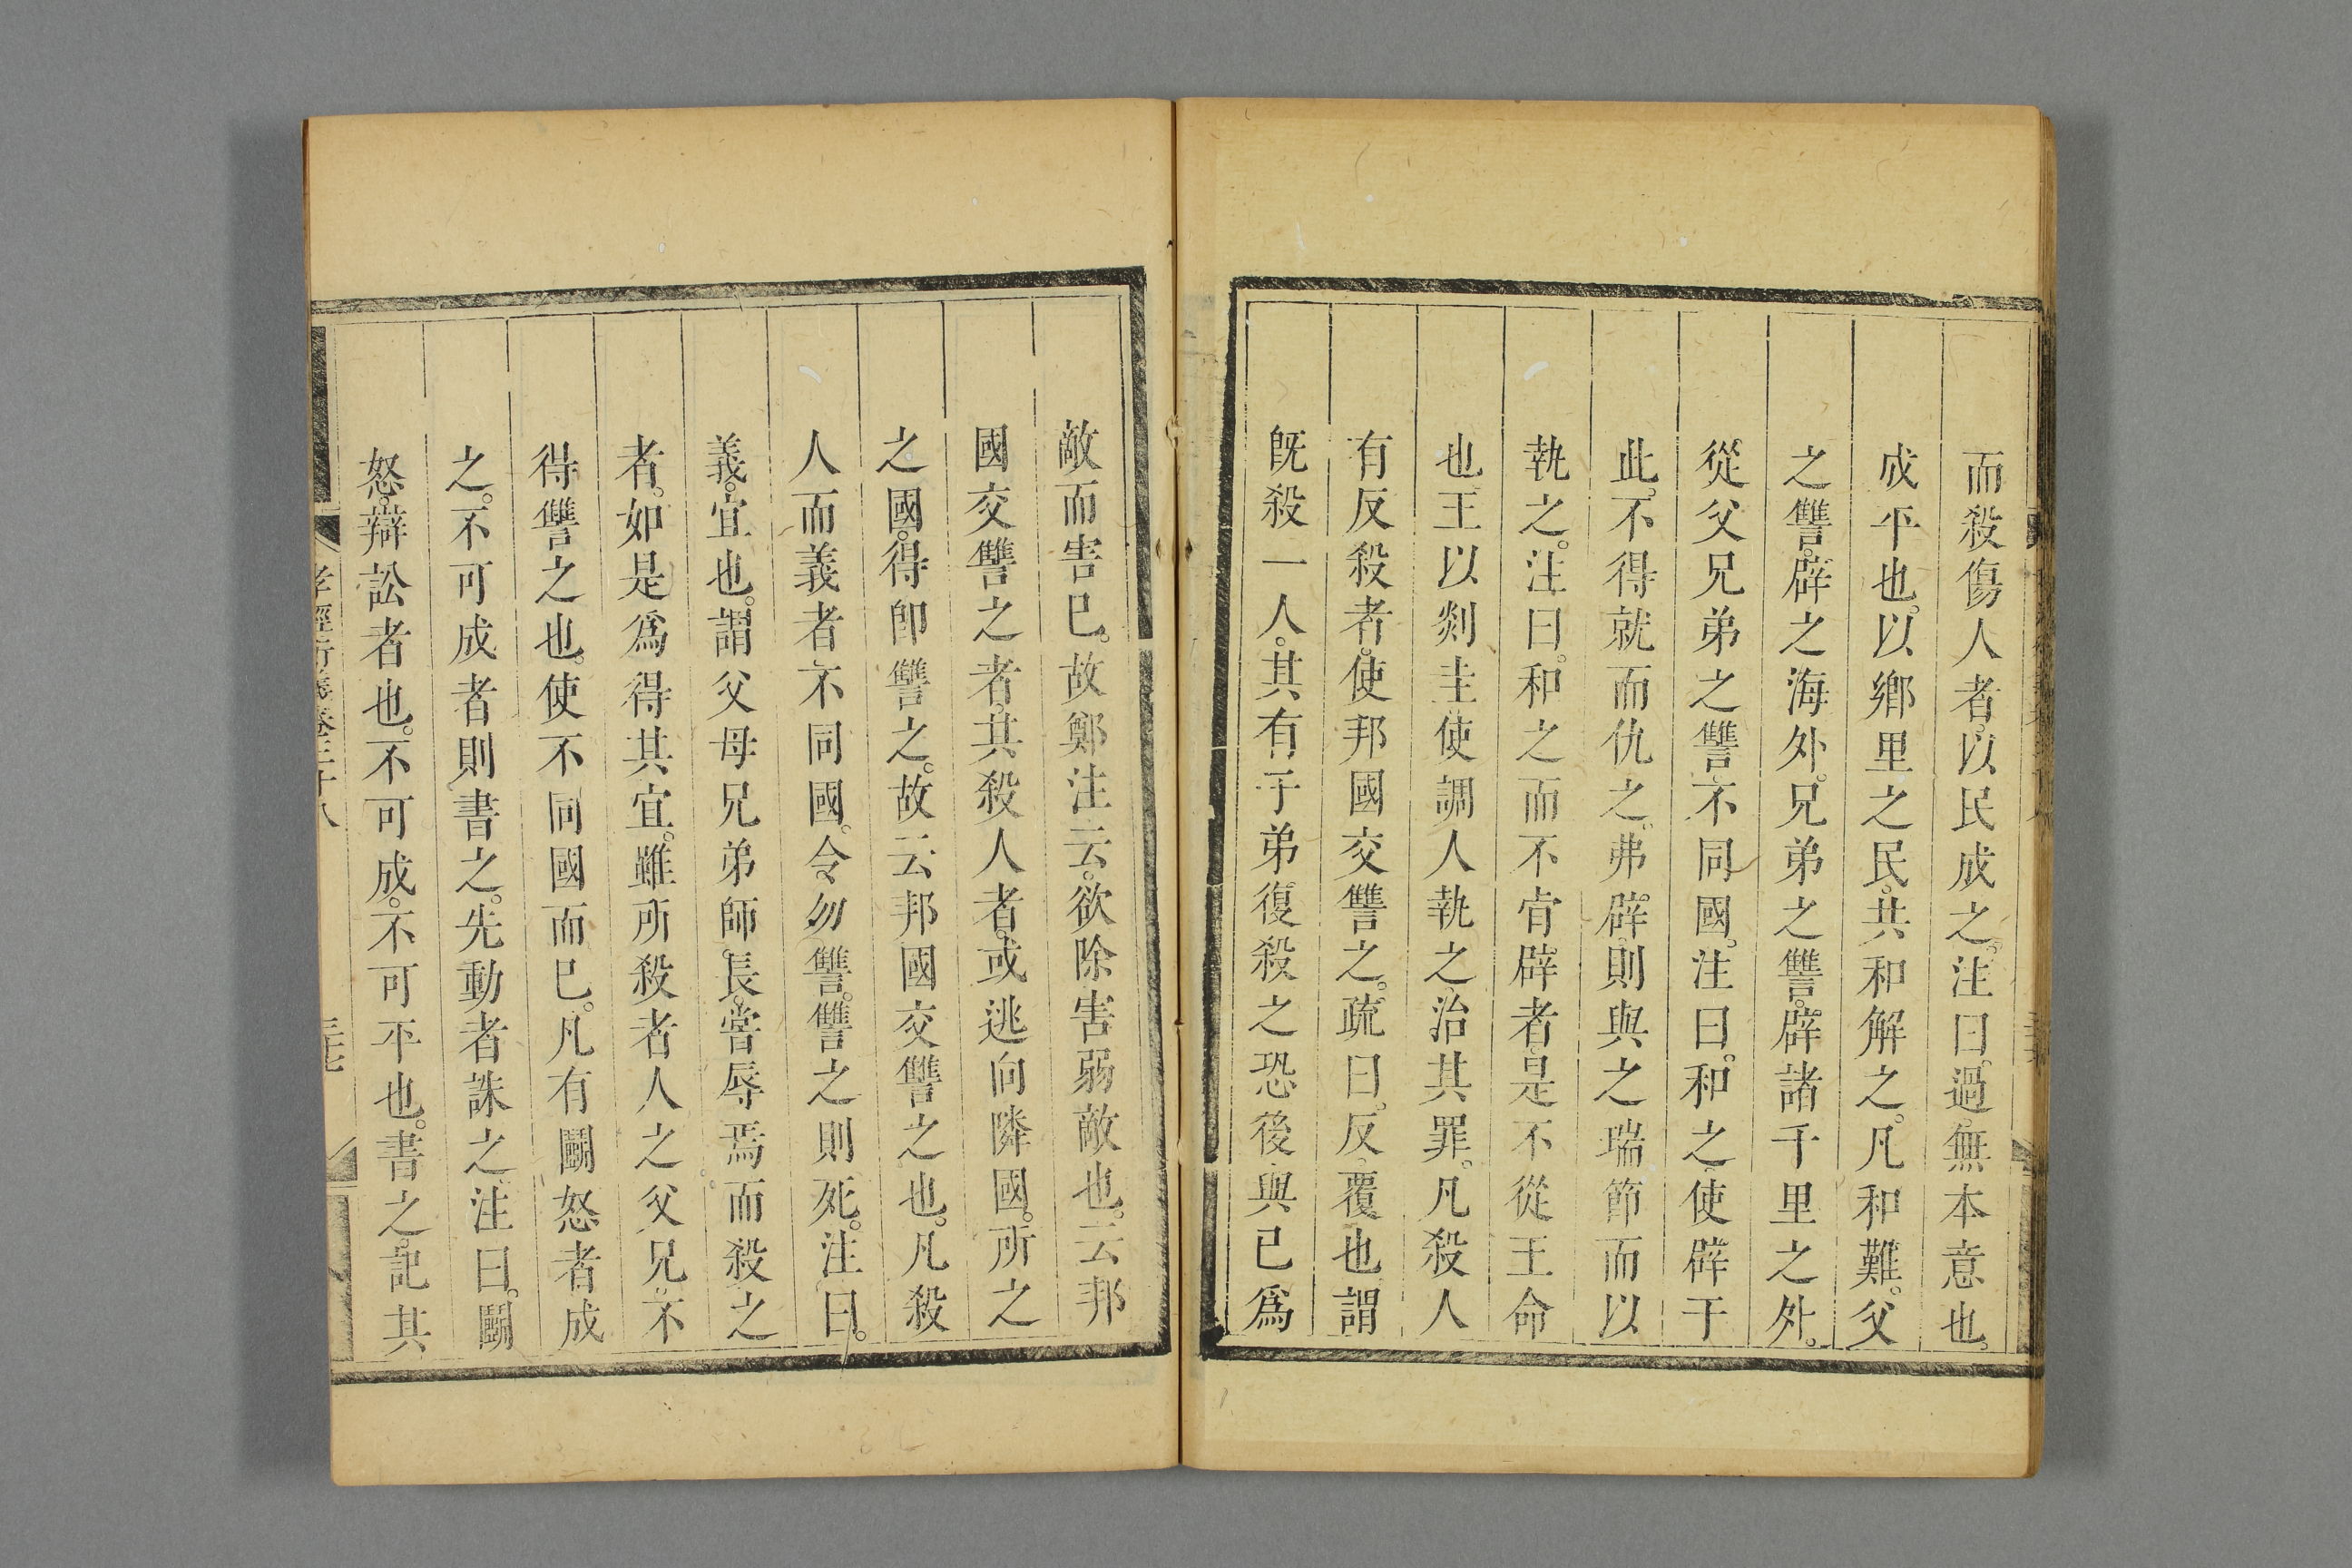 而殺傷人者。以民成之。注曰。過。無本意也。
成平也。以鄉里之民。共和解之。凡和難。父
之讐。辟之海外。兄弟之讐。辟諸千里之外。
從父兄弟之讐。不同國。注曰。和之。使辟于
此。不得就而仇之。弗辟。則與之瑞節而以
執之。注曰。和之而不肯辟者。是不從王命
也王以剡圭使調人執之。治其罪。凡殺人
有反殺者。使邦國交讐之。疏曰。反。覆也謂
既殺一人。其有子弟復殺之恐後與已爲
敵而害巳。故鄭注云。欲除害弱敵也。云邦
國交讐之者。其殺人者。或逃向隣國。所之
之國。得卽讐之。故云邦國交讐之也。凡殺
人而義者不同國。令勿讐。讐之則死。注曰。
義。宜也。謂父母兄弟師。長。嘗辱焉而殺之
者。如是爲得其宜。雖所殺者人之父兄。不
得讐之也。使不同國而巳。凡有鬭怒者成
之。不可成者則書之。先動者誅之。注曰。鬭
怒。辯訟者也。不可成。不可平也。書之。記其
孝經衍義卷三十八
三七